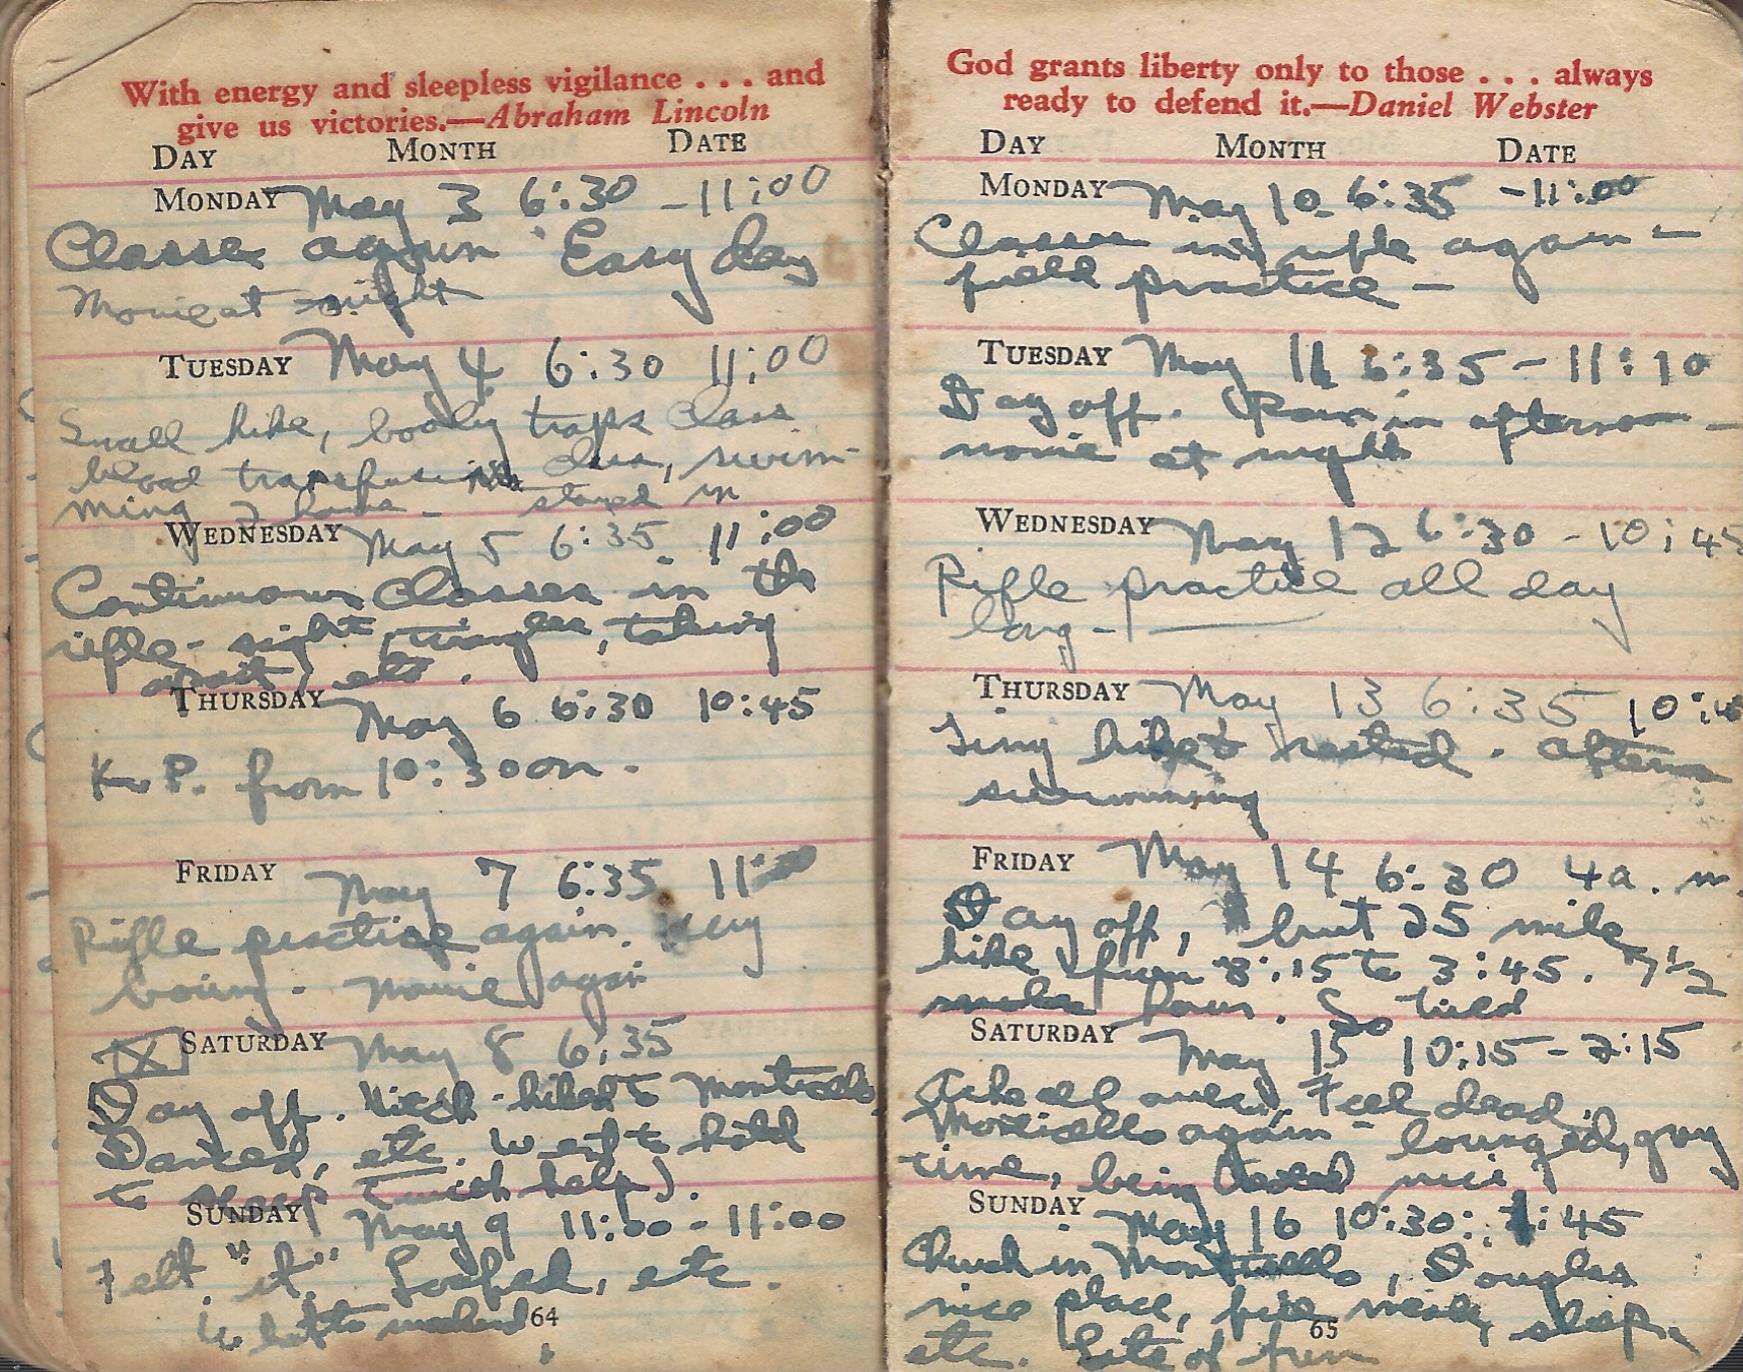 With energy and sleepless vigilance . . . and
give us victories.—Abraham Lincoln
DAY MONTH DATE
MONDAY May 3 6:30 - 11:00
Classes again Easy day
Movie at night
TUESDAY May 4 6:30 11:00
Small hike, booby traps class
blood transfusion class, swim-
ming 2 hours - stayed in
WEDNESDAY May 5 6:35 11:00
Continuous classes in the
rifle - sight, triangles, taking
apart, etc.
THURSDAY May 6 6:30 10:45
K.P. from 10:30 on.
FRIDAY May 7 6:35 11:00
Rifle practice again. Very
boring. Movie again
SATURDAY May 8 6:35
Day off. Hitch-hiked to Monticello,
Danced, etc. Went to hotel
to sleep (much help).
SUNDAY May 9 11:00 - 11:00
Felt "it" Loafed, etc.
weekend
64
God grants liberty only to those . . . always
ready to defend it.—Daniel Webster
DAY MONTH DATE
MONDAY May 10 6:35 - 11:00
Classes in rifle again -
field practice -
TUESDAY May 11 6:35 - 11:10
Day off. Rain in afternoon -
movie at night
WEDNESDAY May 12 6:30 - 10:45
Rifle practice all day
long -
THURSDAY May 13 6:35
Tiny hike & rested.
swimming
FRIDAY May 14 6:30 4 a.m.
Day off, but 25 mile
hike from 8:15 to 3:45. 7 1/2
hours. So tired
SATURDAY May 15 10:15 - 2:15
Ache all over. Feel dead.
Monticello again - lounged, gay
time, being nice
SUNDAY May 16 10:30 :45
Church in Monticello, Douglas
nice place, fine meal, sleep,
etc. Lots of fun
65